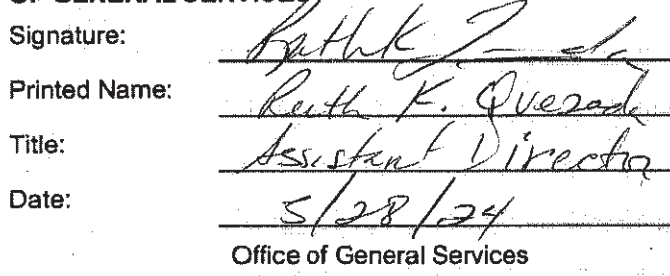 OF GENERAL SERVICES
Signature:
Printed Name: Ruth K. Quezada
Title: Assistant Director
Date: 5/28/24
Office of General Services